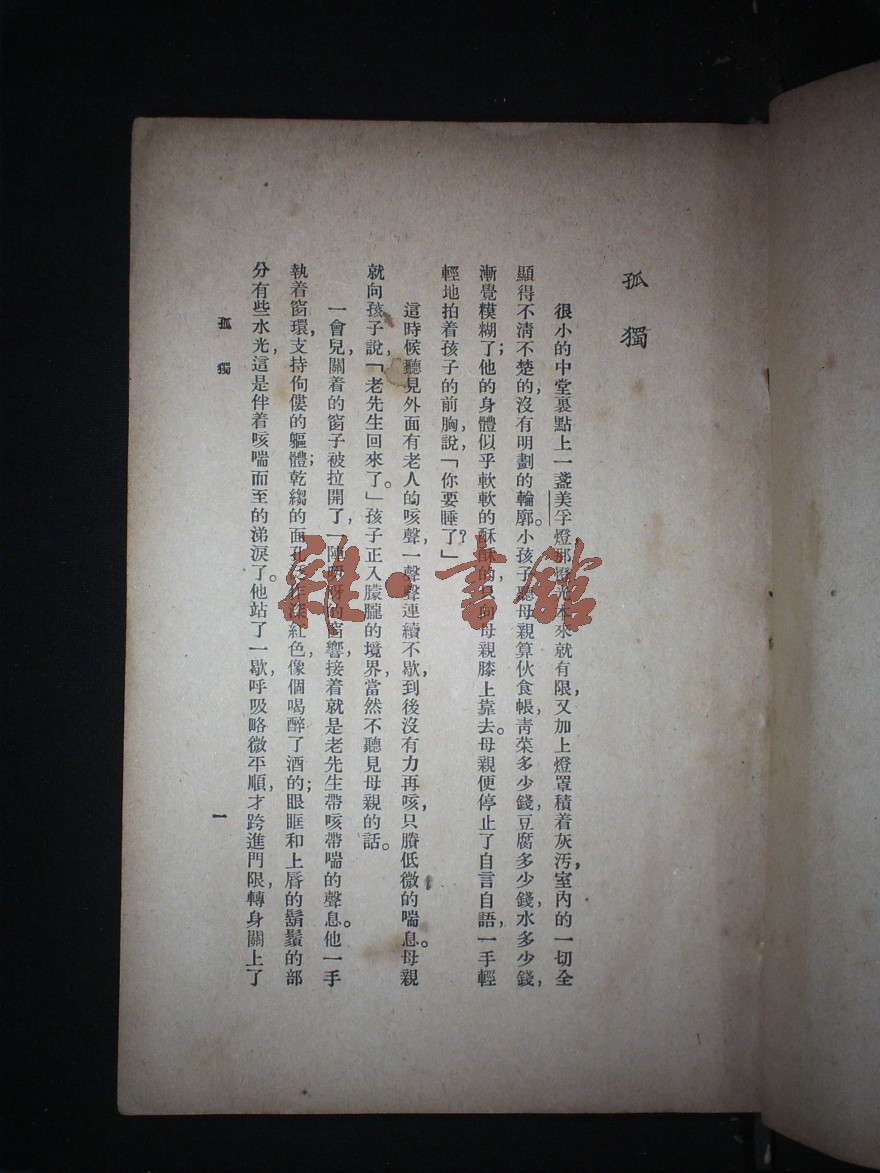 孤獨
很小的中堂裏點上一盞美孚燈,那燈光本來就有限,又加上燈罩積着灰汚,室內的一切全
顯得不清不楚的,沒有明劃的輪廓。小孩子聽母親算伙食帳,靑菜多少錢,豆腐多少錢,水多少錢,
漸覺糢糊了;他的身體似乎軟軟的酥酥的,只向母親膝上靠去。母親便停止了自言自語,一手輕
輕地拍着孩子的前胸,說,「你要睡了?」
這時候聽見外面有老人的咳聲,一聲聲連續不歇,到後沒有力再咳,只賸低微的喘息。母親
就向孩子說,「老先生回來了。」孩子正入朦朧的境界,當然不聽見母親的話。
一會兒,關着的窗子被拉開了,一陣呀呀的窗響,接着就是老先生帶咳帶喘的聲息。他一手
執着窗環,支持佝僂的軀體;乾縐的面孔作深紅色,像個喝醉了酒的;眼眶和上唇的鬍鬚的部
分有些水光,這是伴着咳喘而至的涕淚了。他站了一歇,呼吸略微平順,才跨進門限,轉身關上了
孤獨
一
雜·書館